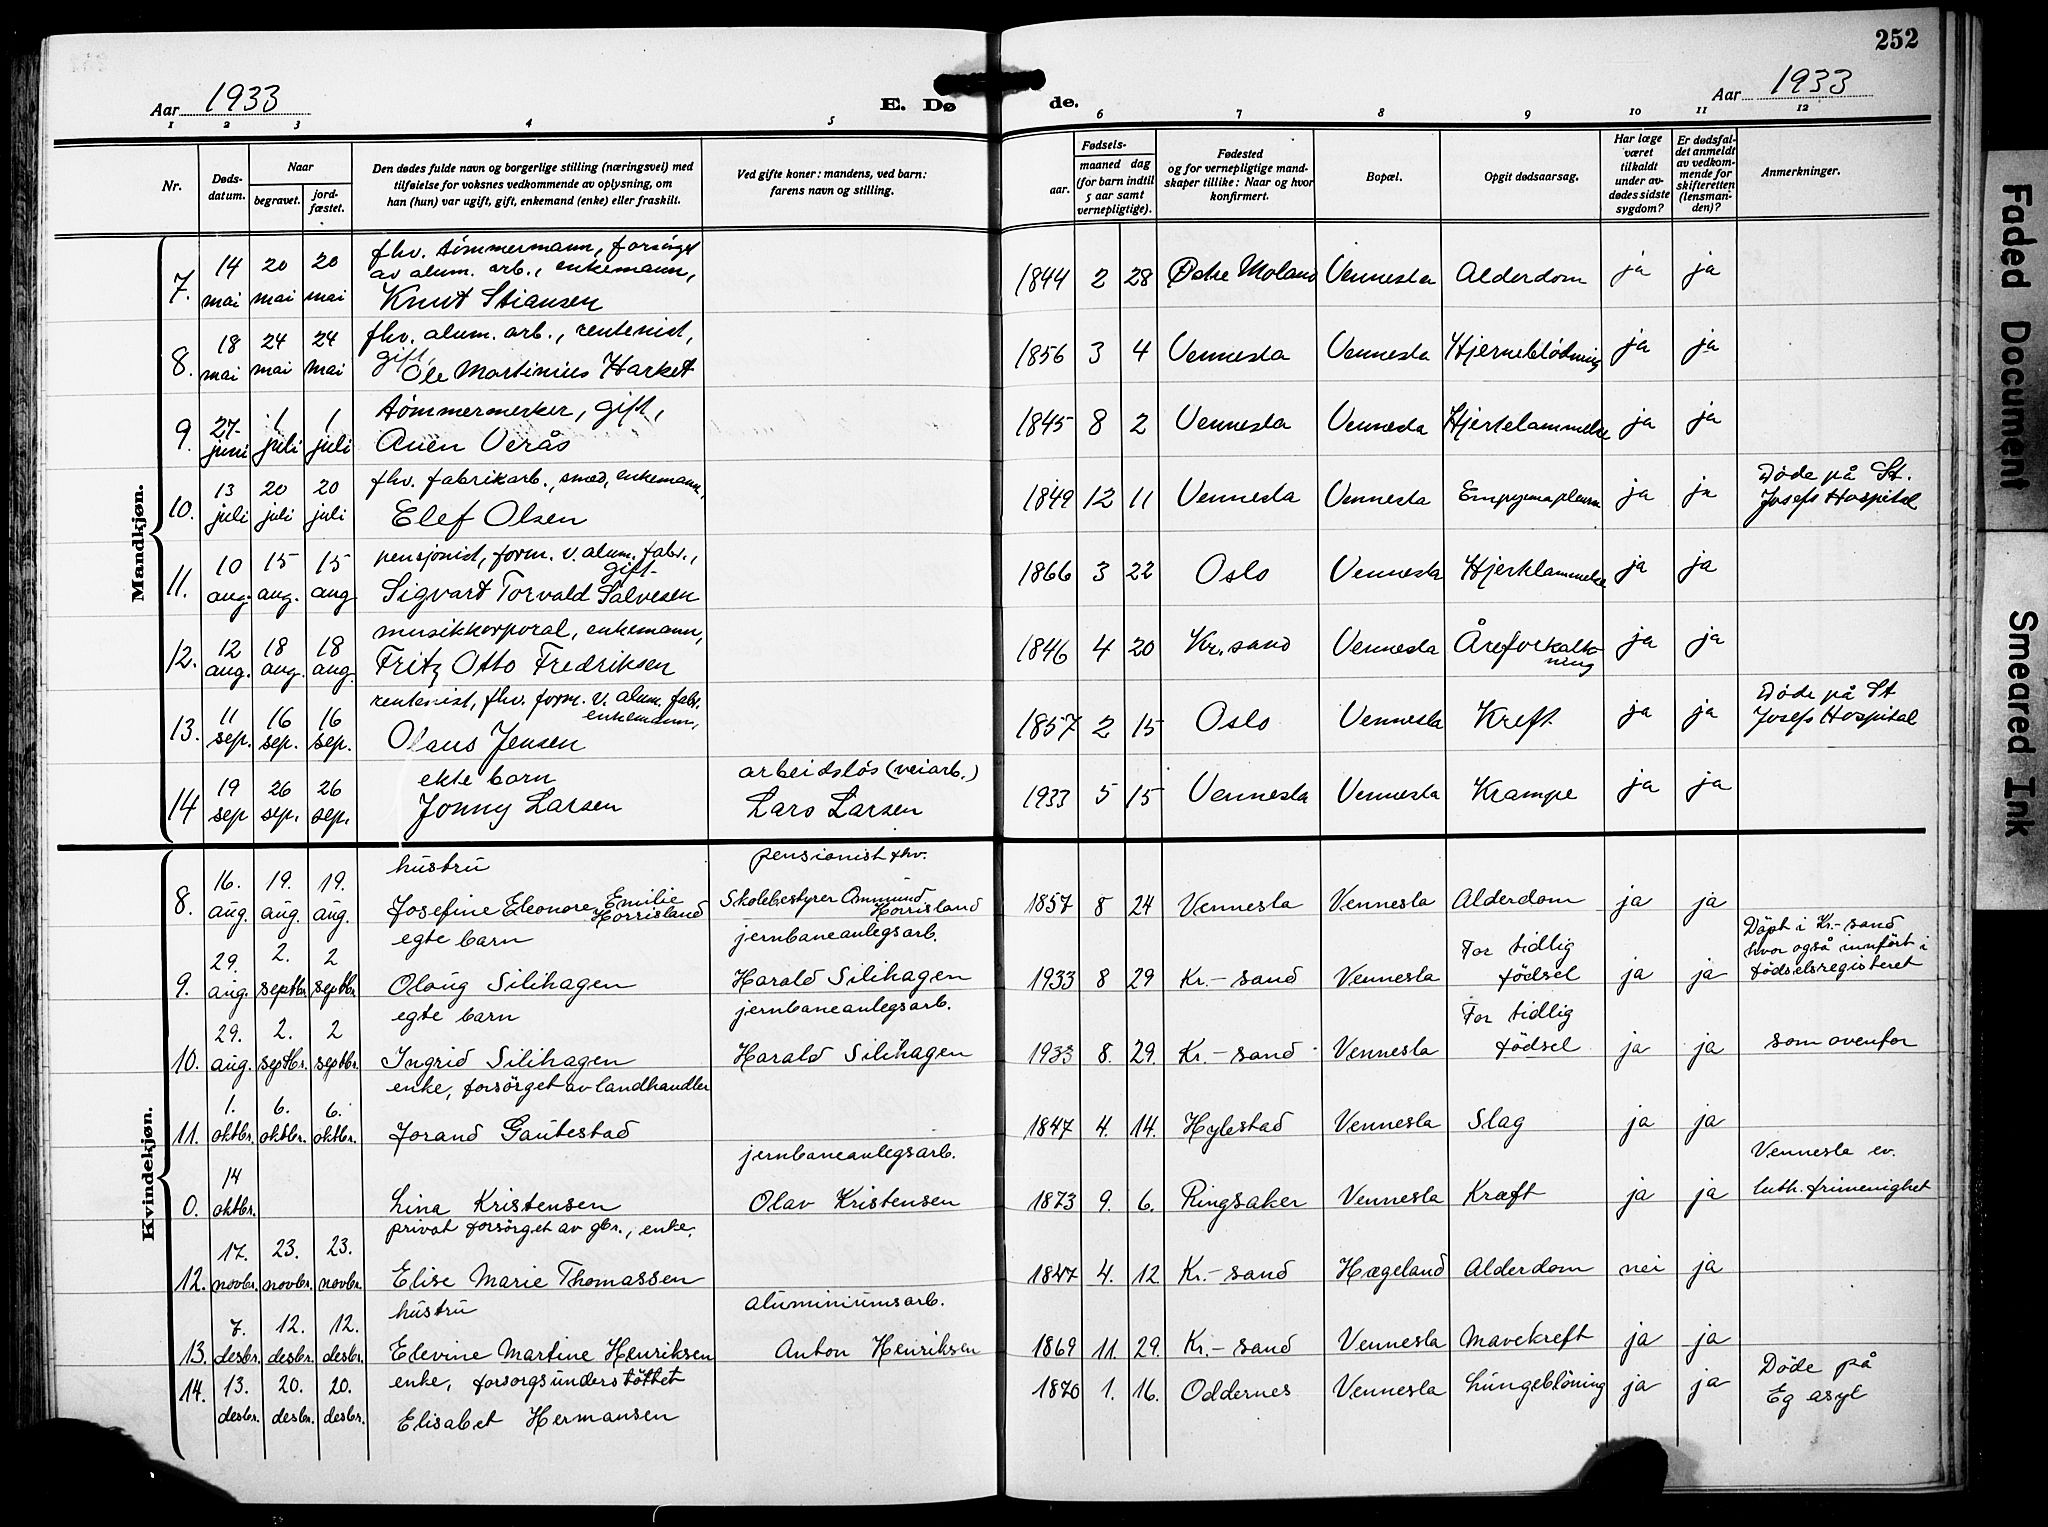 252
Aar 1933
E. Dø
de.
Aar 1933
1 2 3 4 5 6 7 8 9 10 11 12
Nr.
Døds-
datum.
Naar
begravet.
jord-
fæstet.
Den dødes fulde navn og borgerlige stilling (næringsvei) med
tilføielse for voksnes vedkommende av oplysning, om
han (hun) var ugift, gift, enkemand (enke) eller fraskilt.
Ved gifte koner: mandens, ved barn:
farens navn og stilling.
Fødsels-
aar.
maaned dag
(for barn indtil
5 aar samt
vernepligtige).
Fødested
og for vernepligtige mand-
skaper tillike: Naar og hvor
konfirmert.
Bopæl.
Opgit dødsaarsag.
Har læge
været
tilkaldt
under av-
dødes sidste
sygdom?
Er dødsfal-
det anmeldt
av vedkom-
mende for
skifteretten
(lensman-
den)?
Anmerkninger.
Mandkjøn.
fhv. tømmermann, forsörget
av alum. arb., enkemann,
7. 14 mai 20 mai 20 mai Knut Stiansen 1844 2 28 Østre Moland Vennesla Alderdom ja ja
fhv. alum. arb., rentenist,
gift,
8. 18 mai 24 mai 24 mai Ole Martinius Harket 1856 3 4 Vennesla Vennesla Hjerneblödning ja ja
tømmermerker, gift,
9. 27. juni 1 juli 1 juli Auen Verås 1845 8 2 Vennesla Vennesla Hjertelammelse ja ja
fhv. fabrikarb., smed, enkemann,
10. 13 juli 20 juli 20 juli Elef Olsen 1849 12 11 Vennesla Vennesla Empyema pleura ja ja Döde på St.
Josefs Hospital
pensjonist, form. v. alum. fabr.,
gift
11. 10 aug. 15 aug. 15 aug Sigvart Torvald Salvesen 1866 3 22 Oslo Vennesla Hjertelammelse ja ja
musikkorporal, enkemann,
12. 12 aug. 18 aug. 18 aug. Fritz Otto Fredriksen 1846 4 20 Kr. sand Vennesla Åreforkalk-
ning ja ja
rentenist, fhv. form. v. alum. fabr.
enkemann,
13. 11 sep. 16 sep. 16 sep. Olaus Jensen 1857 2 15 Oslo Vennesla Kreft ja ja Döde på St
Josefs Hospital
ekte barn arbeidslös (veiarb.)
14 19 sep 26 sep. 26 sep. Jonny Larsen Lars Larsen 1933 5 15 Vennesla Vennesla Krampe ja ja
Kvindekjøn.
hustru pensionist fhv.
8. 16. aug. 19. aug. 19. aug. Josefine Eleonore Emilie
Horrisland Skolebestyrer Ommund
Horrisland 1857 8 24 Vennesla Vennesla Alderdom ja ja
egte barn jernbaneanlegsarb.
9. 29. aug. 2. septbr. 2 septbr. Olaug Silihagen Harald Silihagen 1933 8 29 Kr.-sand Vennesla For tidlig
födsel ja ja Döpt i Kr.-sand
hvor også innfört i
födselsregisteret
egte barn jernbaneanlegsarb.
10. 29. aug. 2. septbr. 2 septbr. Ingrid Silihagen Harald Silihagen 1933 8. 29. Kr.-sand Vennesla For tidlig
födsel ja ja som ovenfor
enke, forsörget av landhandler
11. 1. oktbr. 6. oktbr. 6. oktbr. Jorand Gautestad 1847 4. 14. Hylestad Vennesla Slag ja ja
jernbaneanlegsarb.
0. 14 oktbr. Lina Kristensen Olav Kristensen 1873 9. 6. Ringsaker Vennesla Kræft ja ja Vennesla ev.
luth. frimenighet
privat forsörget av gbr., enke.
12. 17. novbr. 23. novbr. 23. novbr. Elise Marie Thomassen 1847 4. 12 Kr.-sand Hægeland Alderdom nei ja
hustru aluminiumsarb.
13. 7. desbr. 12. desbr. 12. desbr. Elevine Martine Henriksen Anton Henriksen 1869 11. 29. Kr.-sand Vennesla Mavekreft ja ja
enke, forsorgsunderstöttet
14. 13. desbr. 20. desbr. 20. desbr. Elisabet Hermansen 1870 1. 16. Oddernes Vennesla Lungeblöning ja ja Döde på
Eg asyl
Faded Document
Smeared Ink